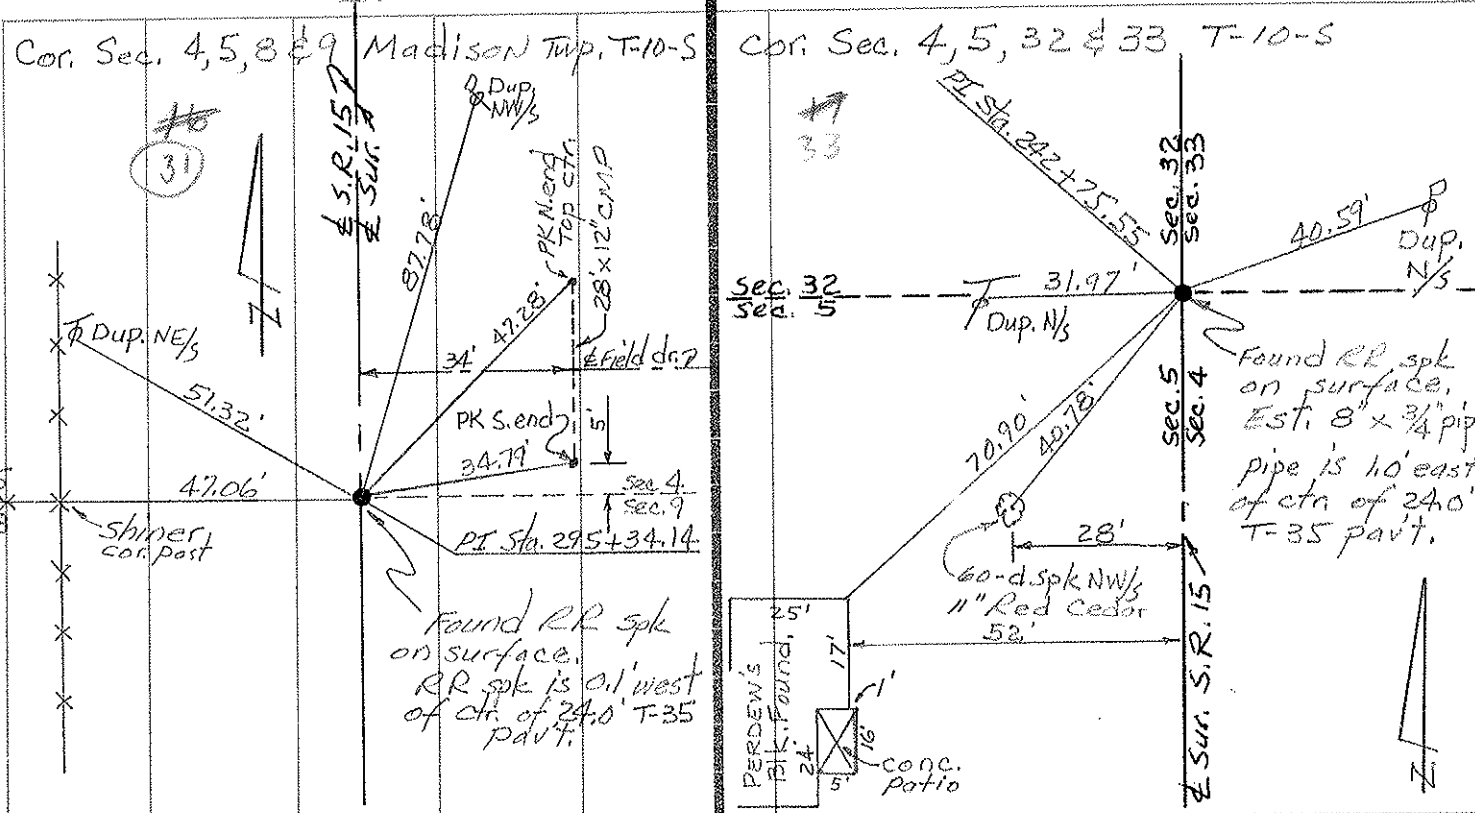 Cor. Sec. 4, 5, 8 & 9 Madison Twp. T-10-S
#6
31
℄ S.R. 15
℄ Sur.
Dup.
NW/s
87.78'
PK N. end
Top ctr.
28' x 12" CMP
47.28'
Dup. NE/s
34'
℄ Field dr.
51.32'
PK S. end
5'
34.79'
47.06'
Sec. 4
Sec. 9
Shiner
cor. post
PI Sta. 295+34.14
Found RR spk
on surface.
RR spk is 0.1' west
of ctr. of 24.0' T-35
pav't.
Cor. Sec. 4, 5, 32 & 33 T-10-S
33
PI Sta. 242+75.55
Sec. 32
Sec. 33
40.59'
Dup.
N/s
Sec. 32
Sec. 5
31.97'
Dup. N/s
Sec. 5
Sec. 4
Found RR spk
on surface.
Est. 8" x 3/4" pip
pipe is 1.0' east
of ctr. of 24.0'
T-35 pav't.
70.90'
40.78'
28'
60-d spk NW/s
11" Red Cedar
52'
25'
17'
PERDEW'S
Blk. Pound.
1'
24'
16'
5'
conc.
patio
℄ Sur. S.R. 15
N
N